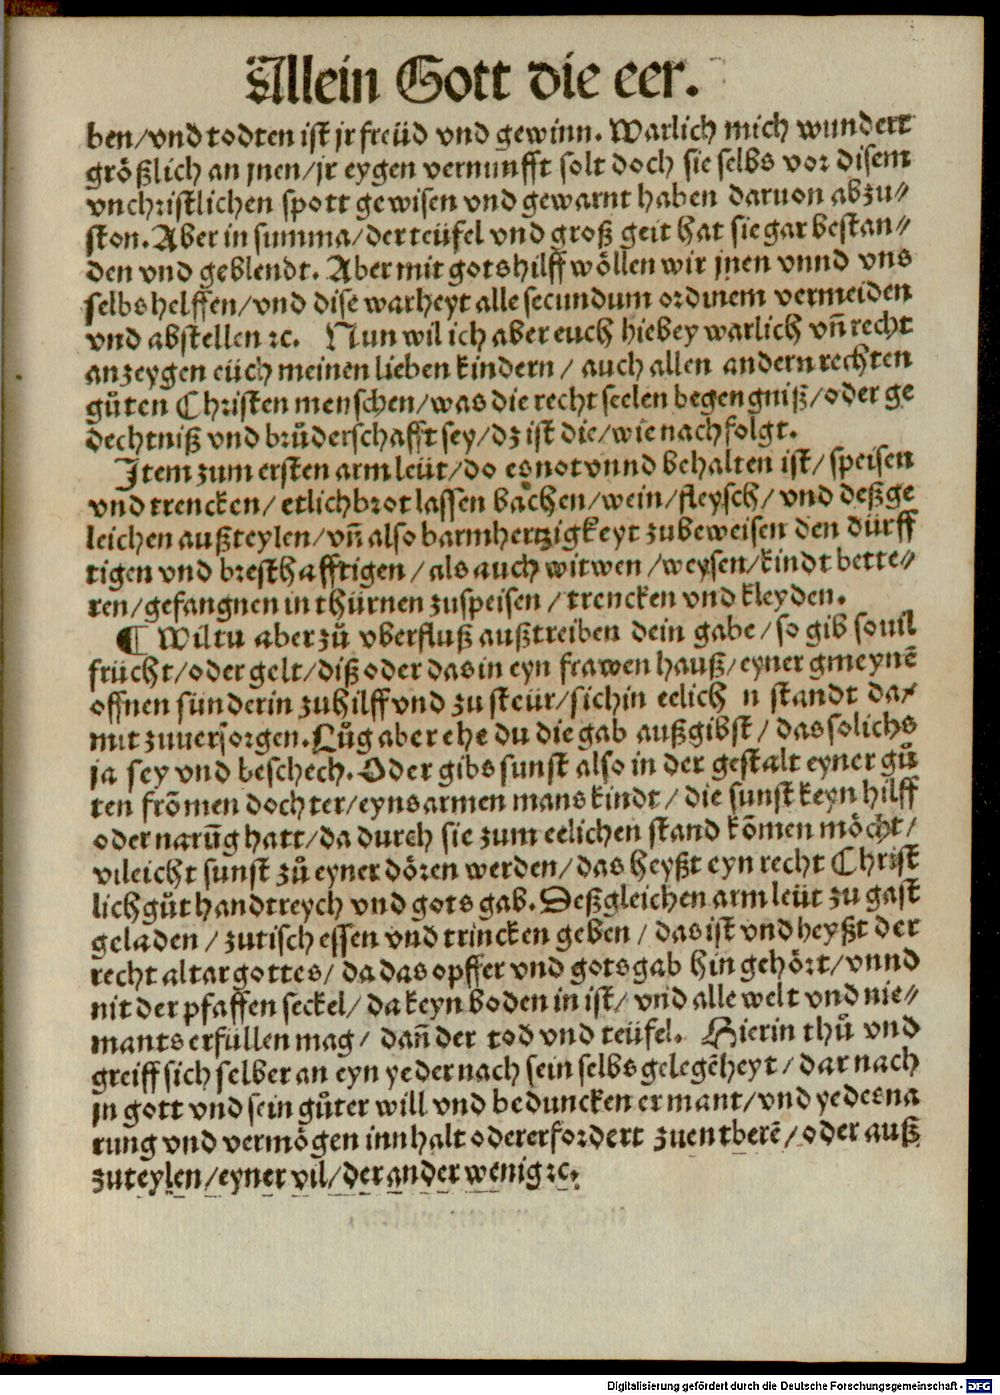 Allein Gott die eer.
ben/vnd todten ist jr freüd vnd gewinn. Warlich mich wundert
größlich an jnen/jr eygen vernunfft solt doch sie selbs vor disem
vnchristlichen spott gewisen vnd gewarnt haben daruon abzu⸗
ston. Aber in summa/der teüfel vnd groß geit hat sie gar bestan⸗
den vnd geblendt. Aber mit gots hilff wöllen wir jnen vnnd vns
selbs helffen/vnd dise warheyt alle secundum ordinem vermeiden
vnd abstellen ꝛc. Nun wil ich aber euch hiebey warlich vñ recht
anzeygen eüch meinen lieben kindern/ auch allen andern rechten
gůten Christen menschen/was die recht seelen begengniß/oder ge
dechtniß vnd brůderschafft sey/dz ist die/wie nachfolgt.
Item zum ersten arm leüt/do es not vnnd behalten ist/ speisen
vnd trencken/ etlich brot lassen bachen/wein/fleysch/ vnd deßge
leichen außteylen/vñ also barmhertzigkeyt zubeweisen den dürff
tigen vnd bresthafftigen/als auch witwen/weysen/kindtbette⸗
ren/gefangnen in thürnen zuspeisen/trencken vnd kleyden.
¶ Wiltu aber zů vberfluß außtreiben dein gabe/so gib souil
frücht/oder gelt/diß oder das in eyn frawen hauß/eyner gmeynē
offnen sünderin zuhilff vnd zu steür/sich in eelich n standt da⸗
mit zuuersorgen. Lůg aber ehe du die gab außgibst/ das solichs
ja sey vnd beschech. Oder gibs sunst also in der gestalt eyner gů
ten frõmen dochter/eyns armen mans kindt/ die sunst keyn hilff
oder narũg hatt/da durch sie zum eelichen stand kõmen möcht/
vileicht sunst zů eyner dören werden/das heyßt eyn recht Christ
lich gůt handtreych vnd gots gab. Deßgleichen arm leüt zu gast
geladen/ zutisch essen vnd trincken geben/ das ist vnd heyßt der
recht altar gottes/ da das opffer vnd gots gab hin gehört/vnnd
nit der pfaffen seckel/ da keyn boden in ist/ vnd alle welt vnd nie⸗
mants erfüllen mag/ dañ der tod vnd teüfel. Hierin thů vnd
greiff sich selber an eyn yeder nach sein selbs gelegēheyt/ dar nach
jn gott vnd sein gůter will vnd beduncken ermant/vnd yedes na
rung vnd vermögen innhalt oder erfordert zuentberē/oder auß
zuteylen/eyner vil/der ander wenig ꝛc.
Digitalisierung gefördert durch die Deutsche Forschungsgemeinschaft - DFG